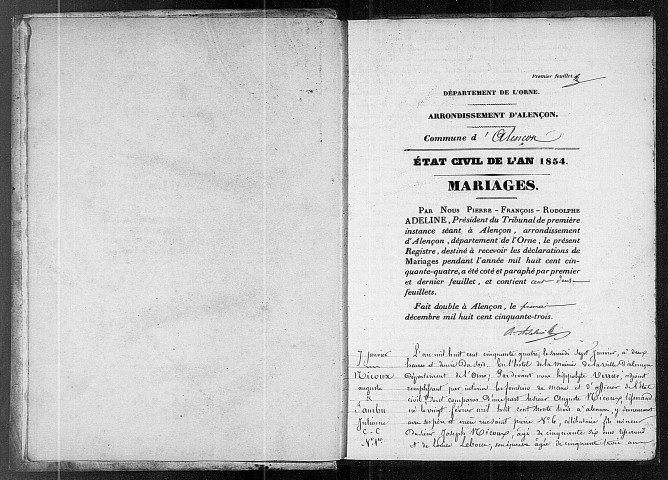 Premier feuillet
DÉPARTEMENT DE L'ORNE.
ARRONDISSEMENT D'ALENÇON.
Commune d'Alençon
ÉTAT CIVIL DE L'AN 1854.
MARIAGES.
PAR NOUS PIERRE-FRANÇOIS-RODOLPHE
ADELINE, Président du Tribunal de première
instance séant à Alençon, arrondissement
d'Alençon, département de l'Orne, le présent
Registre, destiné à recevoir les déclarations de
Mariages pendant l'année mil huit cent cin-
quante-quatre, a été coté et paraphé par premier
et dernier feuillet, et contient cent deux
feuillets.
Fait double à Alençon, le premier
décembre mil huit cent cinquante-trois.
7 janvier
Nicoux
auguste
&
Julienne
C-C
N° 1er
L'an mil huit cent cinquante quatre, le samedi sept Janvier, à deux
heures et demie du soir. En l'hôtel de la mairie de la ville d'alençon
département de l'Orne; Par devant nous hippolyte adjoint
remplissant par interim les fonctions de maire et d'officier de l'Etat
civil; Sont comparus D'une part le sieur Auguste Nicoux, tisserand
né le vingt février mil huit cent trente trois à alençon, y demeurant
avec ses père et mère N° 6, célibataire fils mineur
Du sieur Joseph Nicoux, âgé de cinquante six ans tisserand
& de Louise Leboux, son épouse âgée de cinquante trois ans